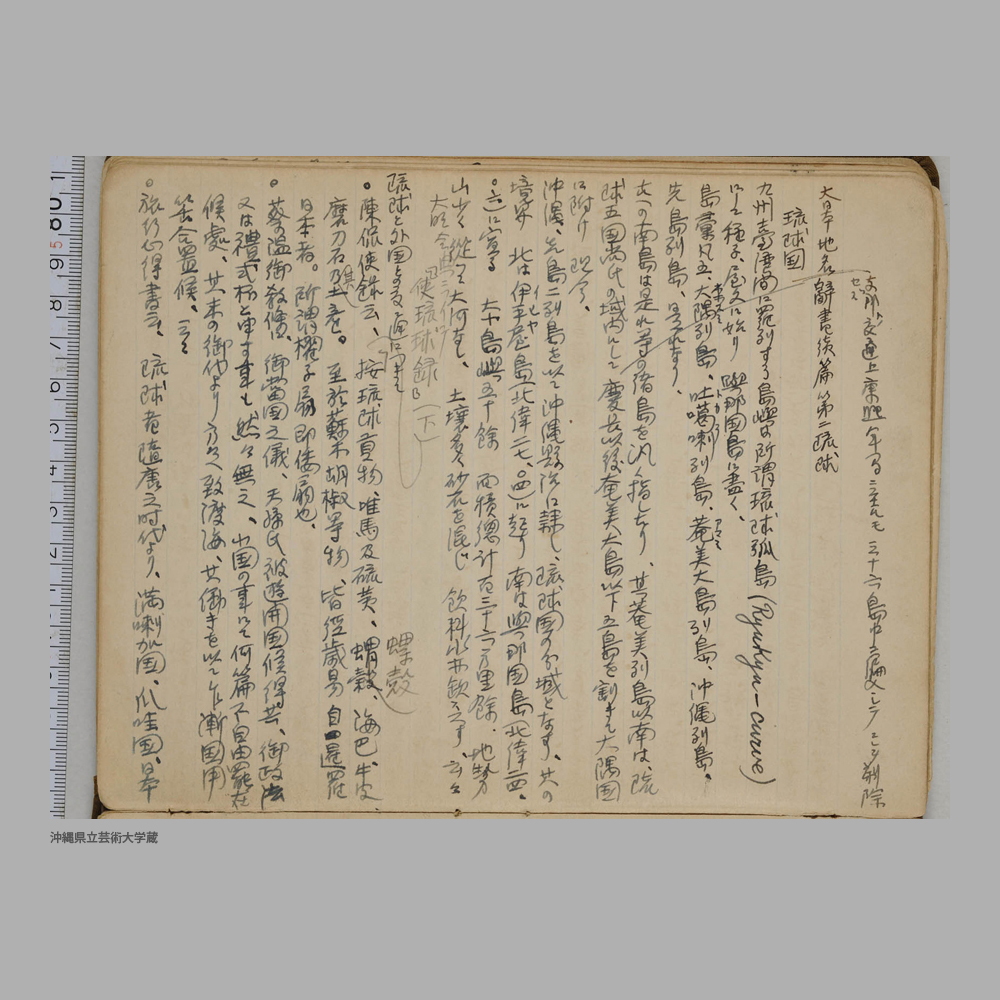 大日本地名辭書續篇第二琉球
琉球國
九州臺灣間に羅列する島嶼は所謂琉球弧島(Ryukyu-curve)
にして種子、屋久に始り與那国島に盡く、
島彙凡五、大隅列島、吐噶喇列島、菴美大島列島、沖縄列島、
先島列島、是れなり、
古への南島は是れ等の諸島を汎く指しなり、其菴美列島以南は、琉
球王国尚氏の域内にして慶長以後奄美大島以下五島を割きて大隅国
に附け 現今、
沖縄、先島二列島を以て沖縄縣治に隷し、琉球国の分域となす、其の
境界 北は伊平屋島(北偉二七、四)に起り 南は與那国島(北偉二四、
大小島嶼五十餘 面積總計百二十六方里餘、地勢
山少く 土壤多く砂石を混じ 飲料水
大明会典
使琉球録 (下)
琉球と外国との交通につきて
陳侃使録云、按琉球貢物、唯馬及硫黄、螺殻、海巴、牛皮、
磨刀石乃其土産。至於蘇木胡椒等物、皆經歳易自暹羅
日本者。所謂櫂子扇即倭扇也。
蔡温御教條、御當国之儀、天孫氏被遊開国候得共、御政法
又は禮式杯と申す事も 然々無之、小国の事にて何篇不自由罷在
候處、其末の御代より方々致渡海、其働きを以て漸国用
筈合置候、云々
旅行心得書云、琉球者隋唐之時代より、満喇加国、爪哇国、日本